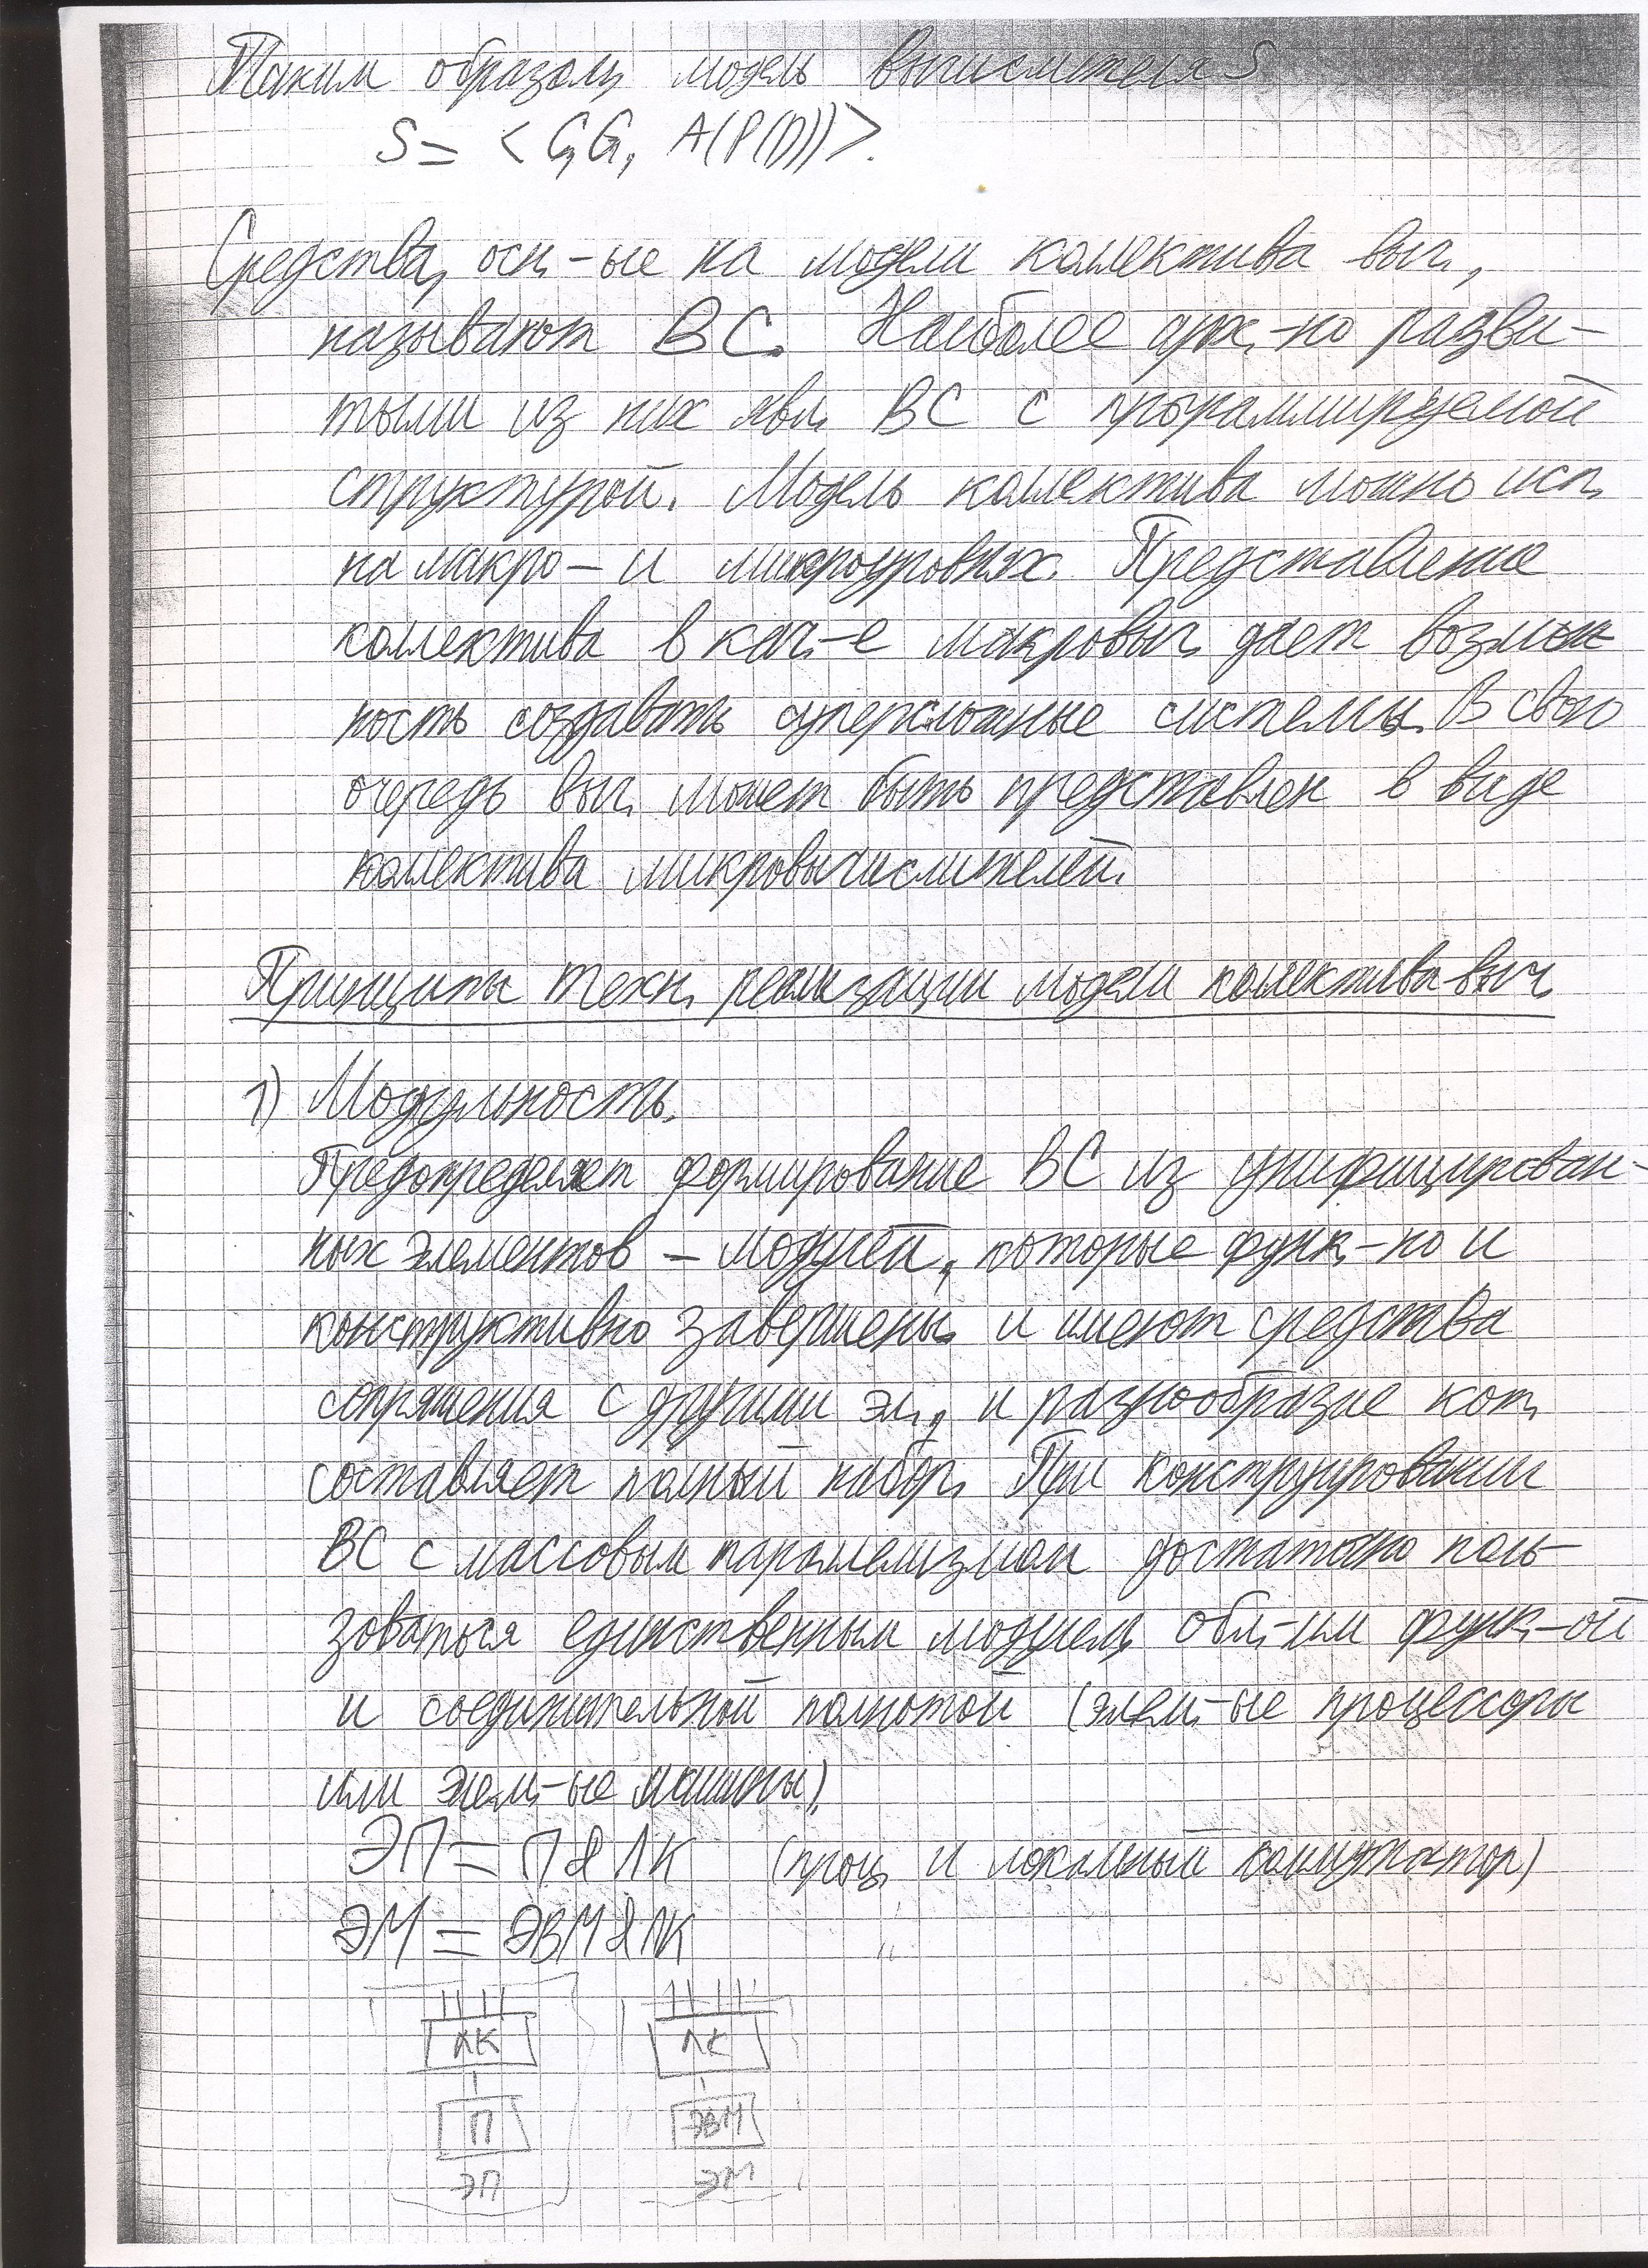 Таким образом, модель вычислителя S
S = < C, G, A(P(D)) >.
Средства, осн-ые на модели коллектива выч.,
называют ВС. Наиболее арх.-но разви-
тыми из них явл. ВС с программируемой
структурой. Модель коллектива можно исп.
на макро- и микроуровнях. Представление
коллектива в кач-е макровыч. дает возмож-
ность создавать суперсложные системы. В свою
очередь выч. может быть представлен в виде
коллектива микровычислителей.
Принципы техн. реализации модели коллектива выч.
1) Модульность.
Предопределяет формирование ВС из унифицирован-
ных элементов - модулей, которые функ.-но и
конструктивно завершены и имеют средства
сопряжения с другими эл., и разнообразие кот.
составляет полный набор. При конструировании
ВС с массовым параллелизмом достаточно поль-
зоваться единственным модулем, обл.-им функ.-ой
и соединительной полнотой (элем.-ые процессоры
или элем.-ые машины).
ЭП = П & ЛК (проц. и локальный коммутатор)
ЭМ = ЭВМ & ЛК "
ЛК ЛК
П ЭВМ
ЭП ЭМ